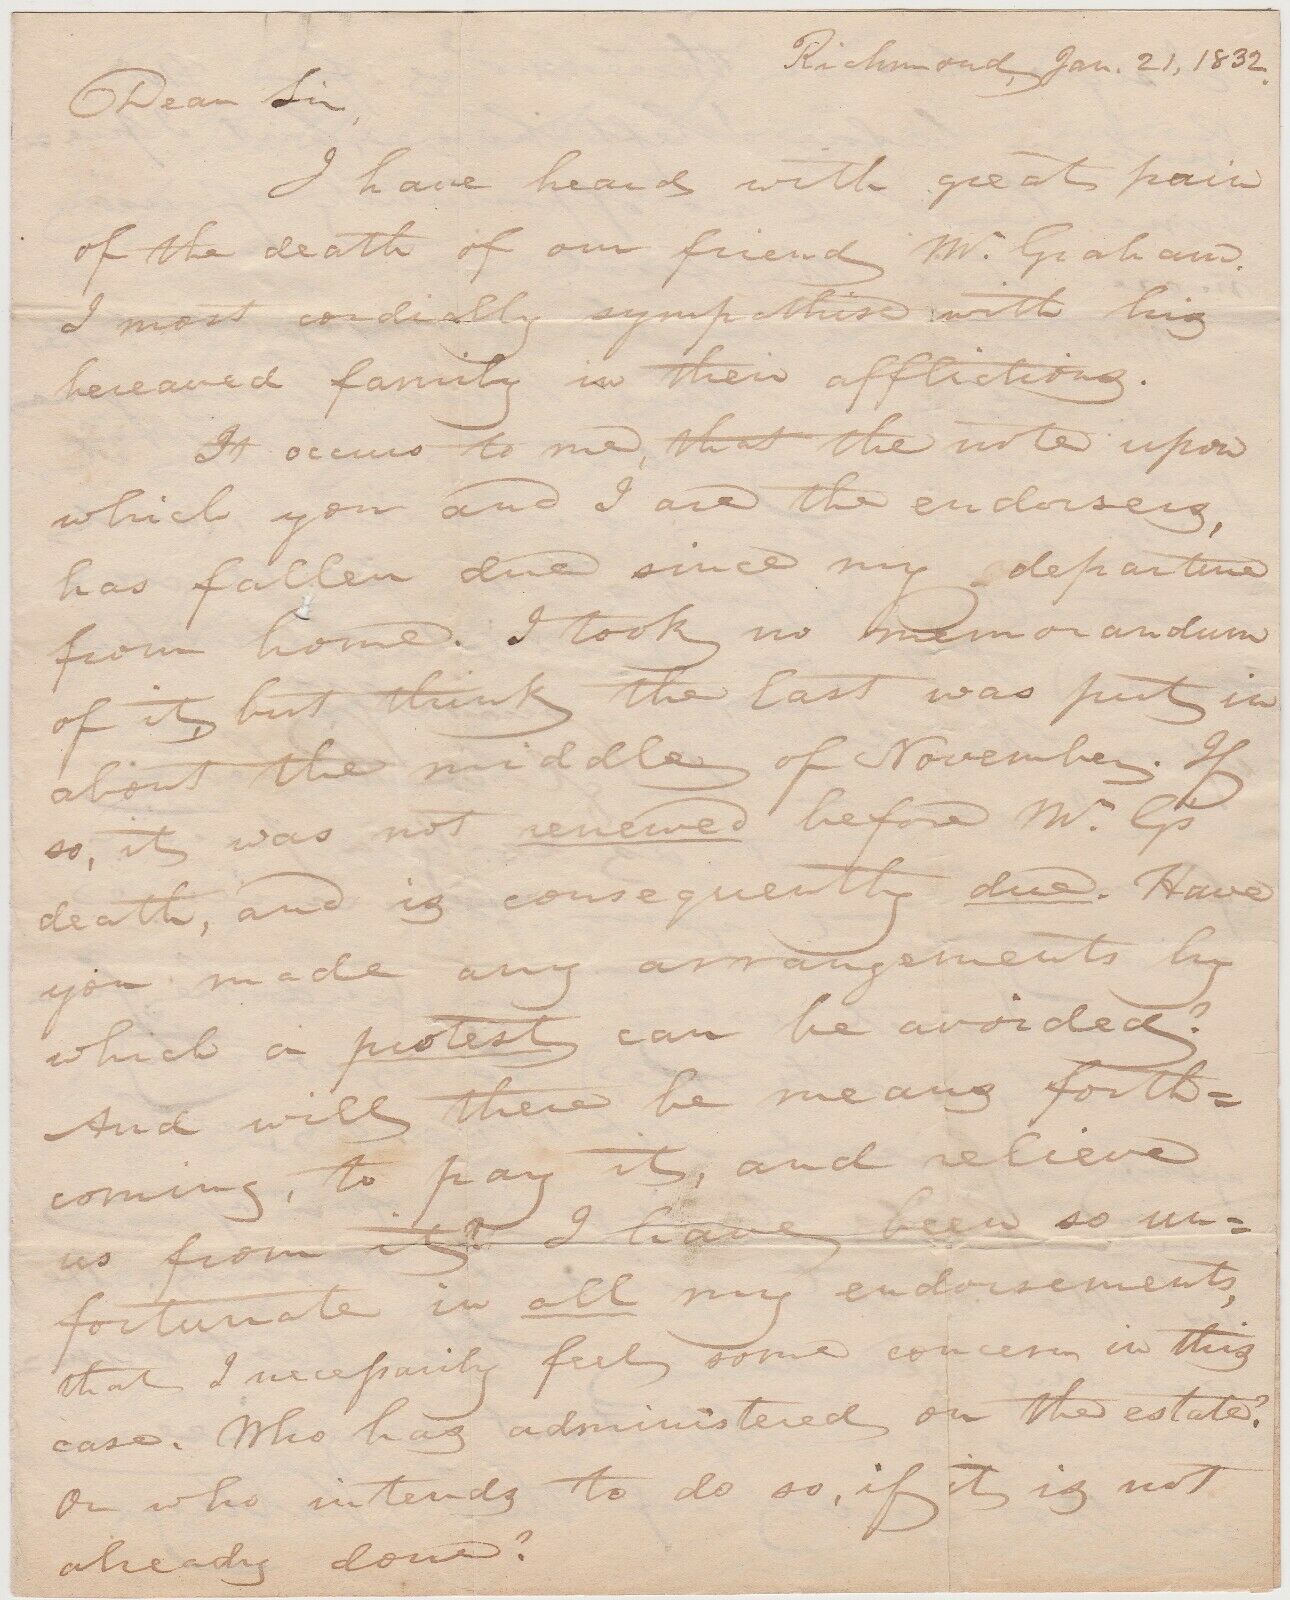 Richmond, Jan. 21, 1832.
Dear Sir,
I have heard with great pain
of the death of our friend Mr. Graham.
I most cordially sympathise with his
bereaved family in their afflictions.
It occurs to me, that the note upon
which you and I are the endorsers,
has fallen due since my departure
from home. I took no memorandum
of it, but think the last was put in
about the middle of November. If
so, it was not renewed before Mr. G's
death, and is consequently due. Have
you made any arrangements by
which a protest can be avoided?
And will there be means forth=
coming, to pay it, and relieve
us from it? I have been so un=
fortunate in all my endorsements,
that I necessarily feel some concern in this
case. Who has administered on the estate?
Or who intends to do so, if it is not
already done?